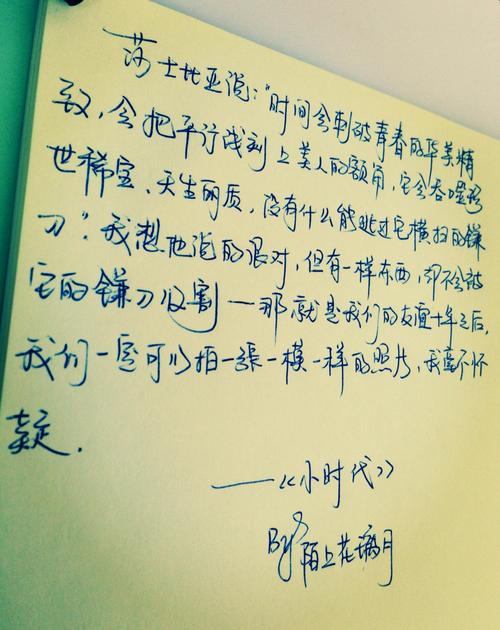 莎士比亚说："时间会刺破青春的华美精
致，会把平行线刻上美人的额角，它会吞噬稀
世稀宝、天生丽质，没有什么能逃过它横扫的镰
刀"。我想他说的很对，但有一样东西，却不会被
它的镰刀收割——那就是我们的友谊十年之后，
我们一定可以拍一张一模一样的照片，我毫不怀
疑.
——《小时代》
By 陌上花漓月